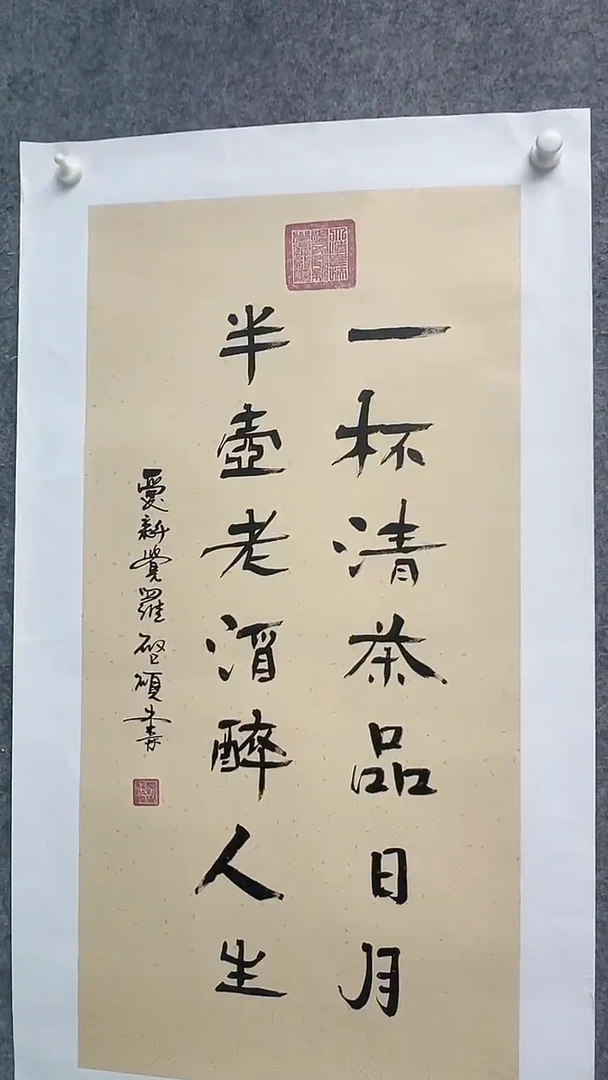 一杯清茶品日月
半壶老酒醉人生
愛新覺羅啓頌書